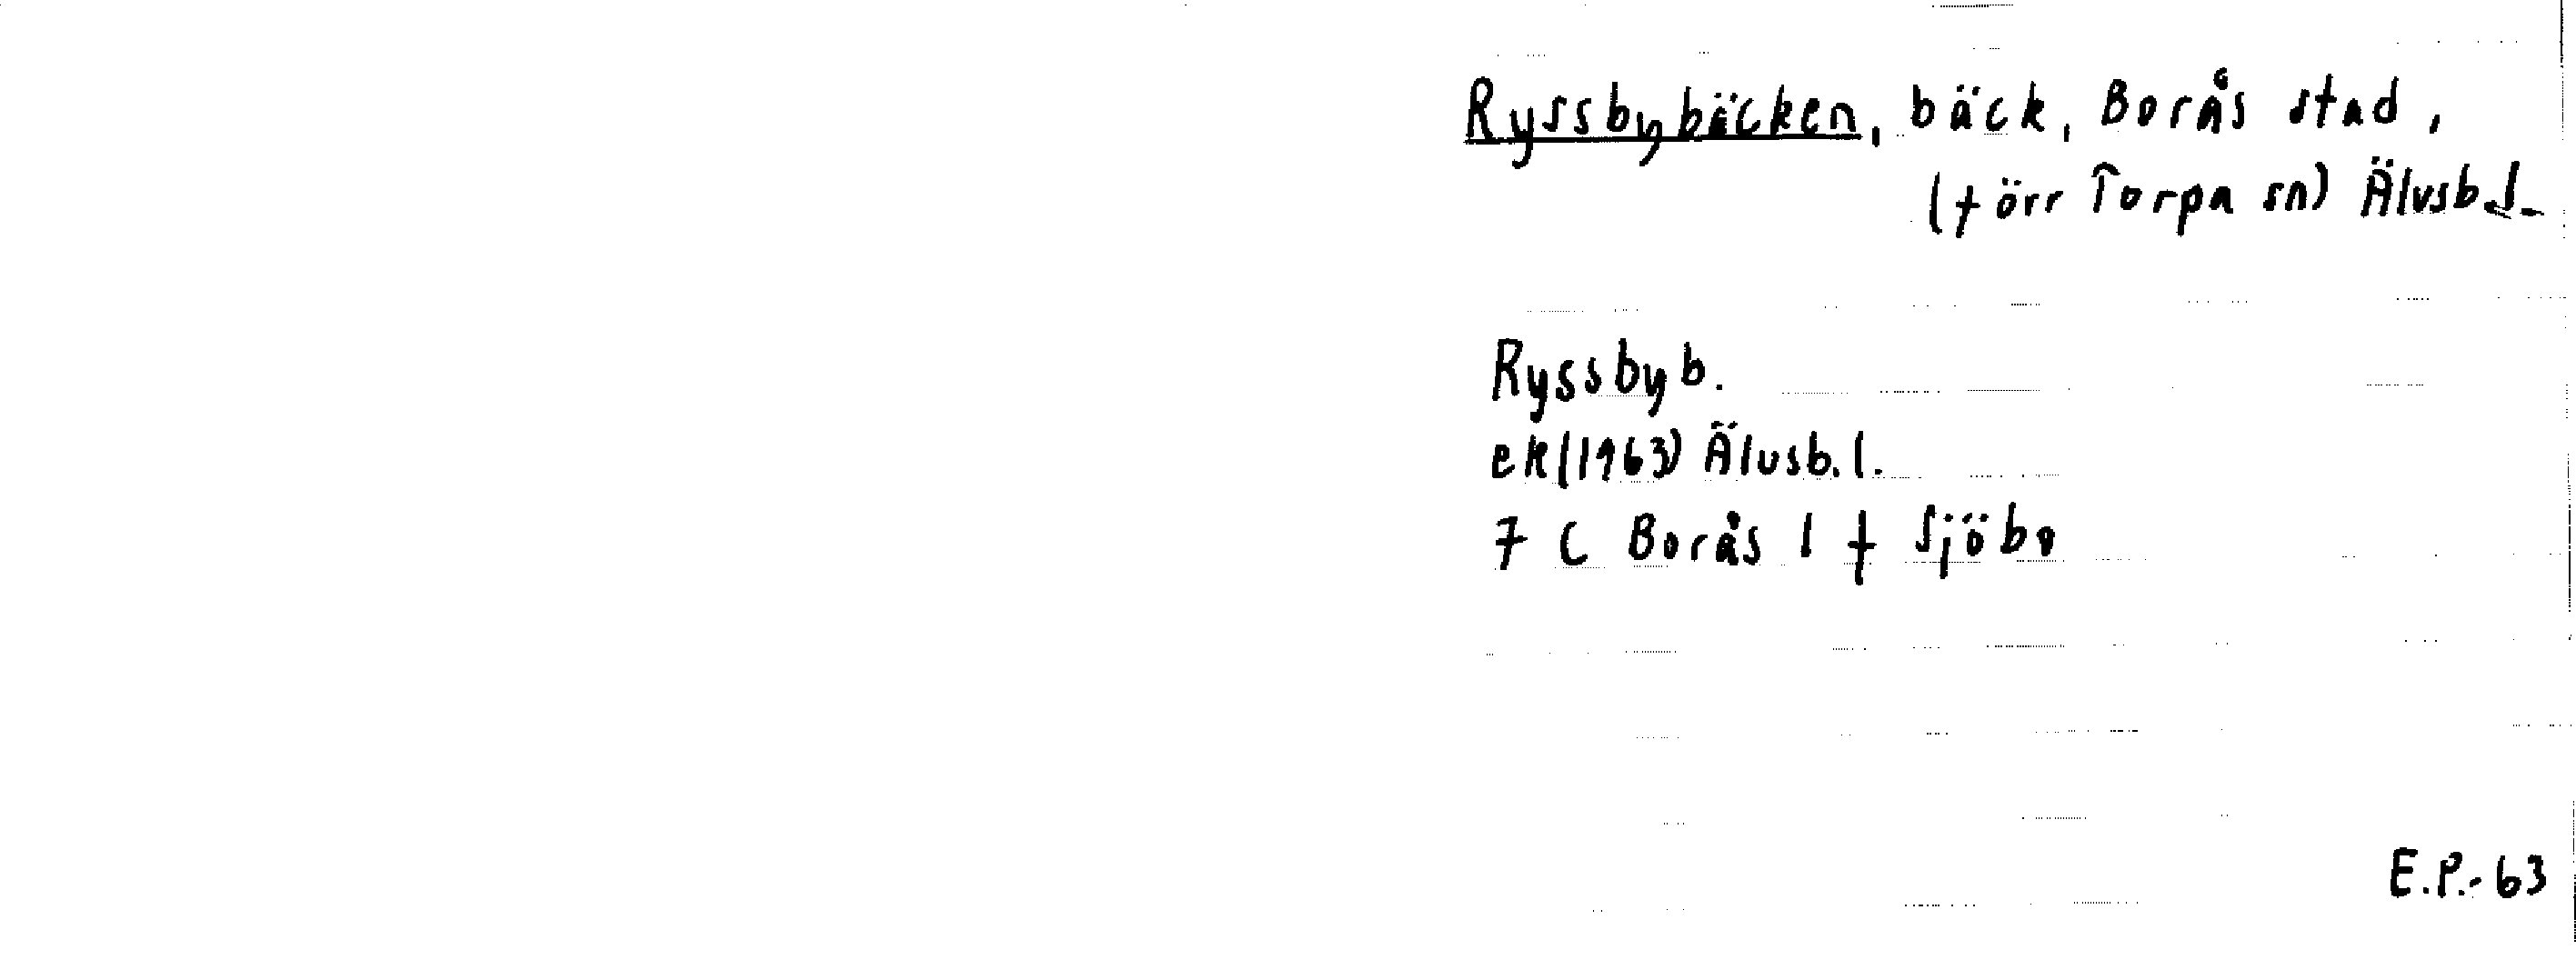 Ryssbybäcken, bäck, Borås stad,
(förr Torpa sn) Älvsb.l.
Ryssbyb.
ek(1963) Älvsb.l.
7 C Borås 1 f Sjöbo
E.P.-63